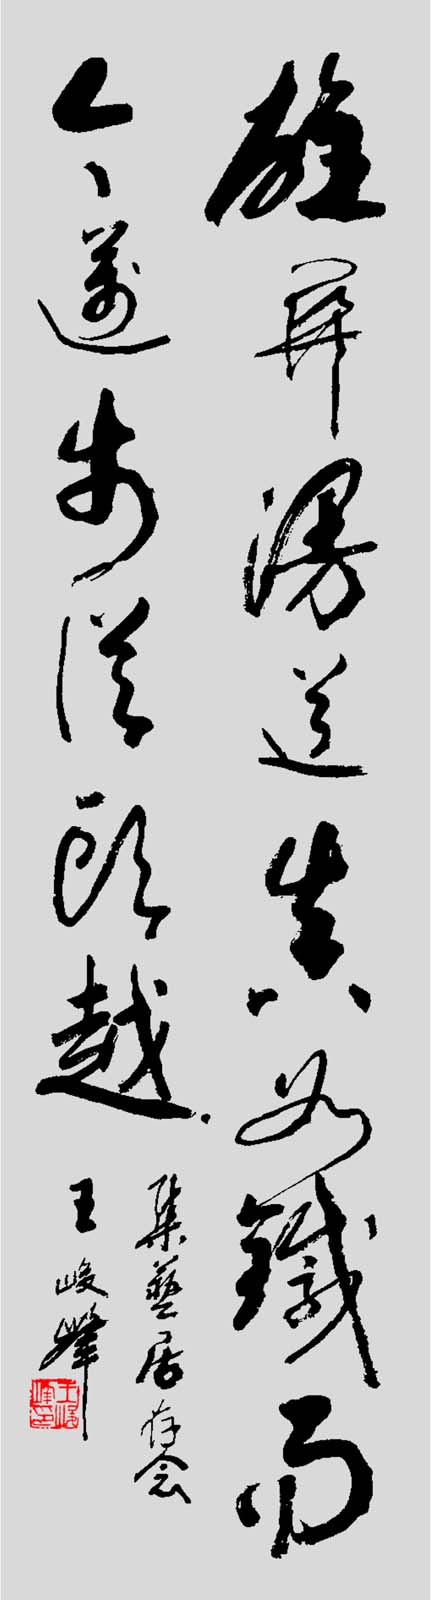 雄關漫道真如鐵而
今邁步從頭越
集藝居存念
王峻峯
王峻峰印